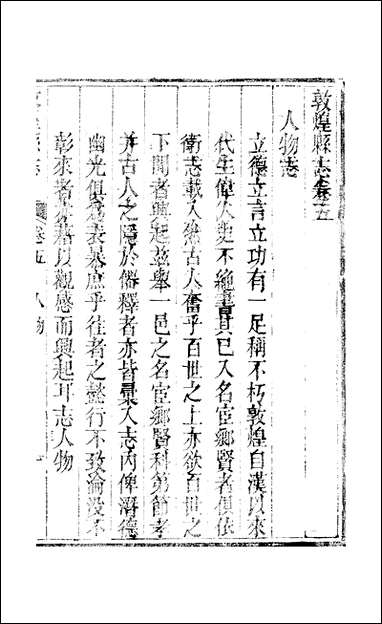 敦煌縣志卷五
人物志
立德立言立功有一足稱不朽敦煌自漢以來
代生偉人史不絶書其已入名宦鄉賢者俱依
衛志載入然古人奮乎百世之上亦欲百世之
下聞者興起茲舉一邑之名宦鄉賢科第節孝
并古人之隱於僊釋者亦皆彙入志內俾潛德
幽光俱爲表暴庶乎往者之懿行不致淪没不
彰來者亦藉以觀感而興起耳志人物
卷五 人物